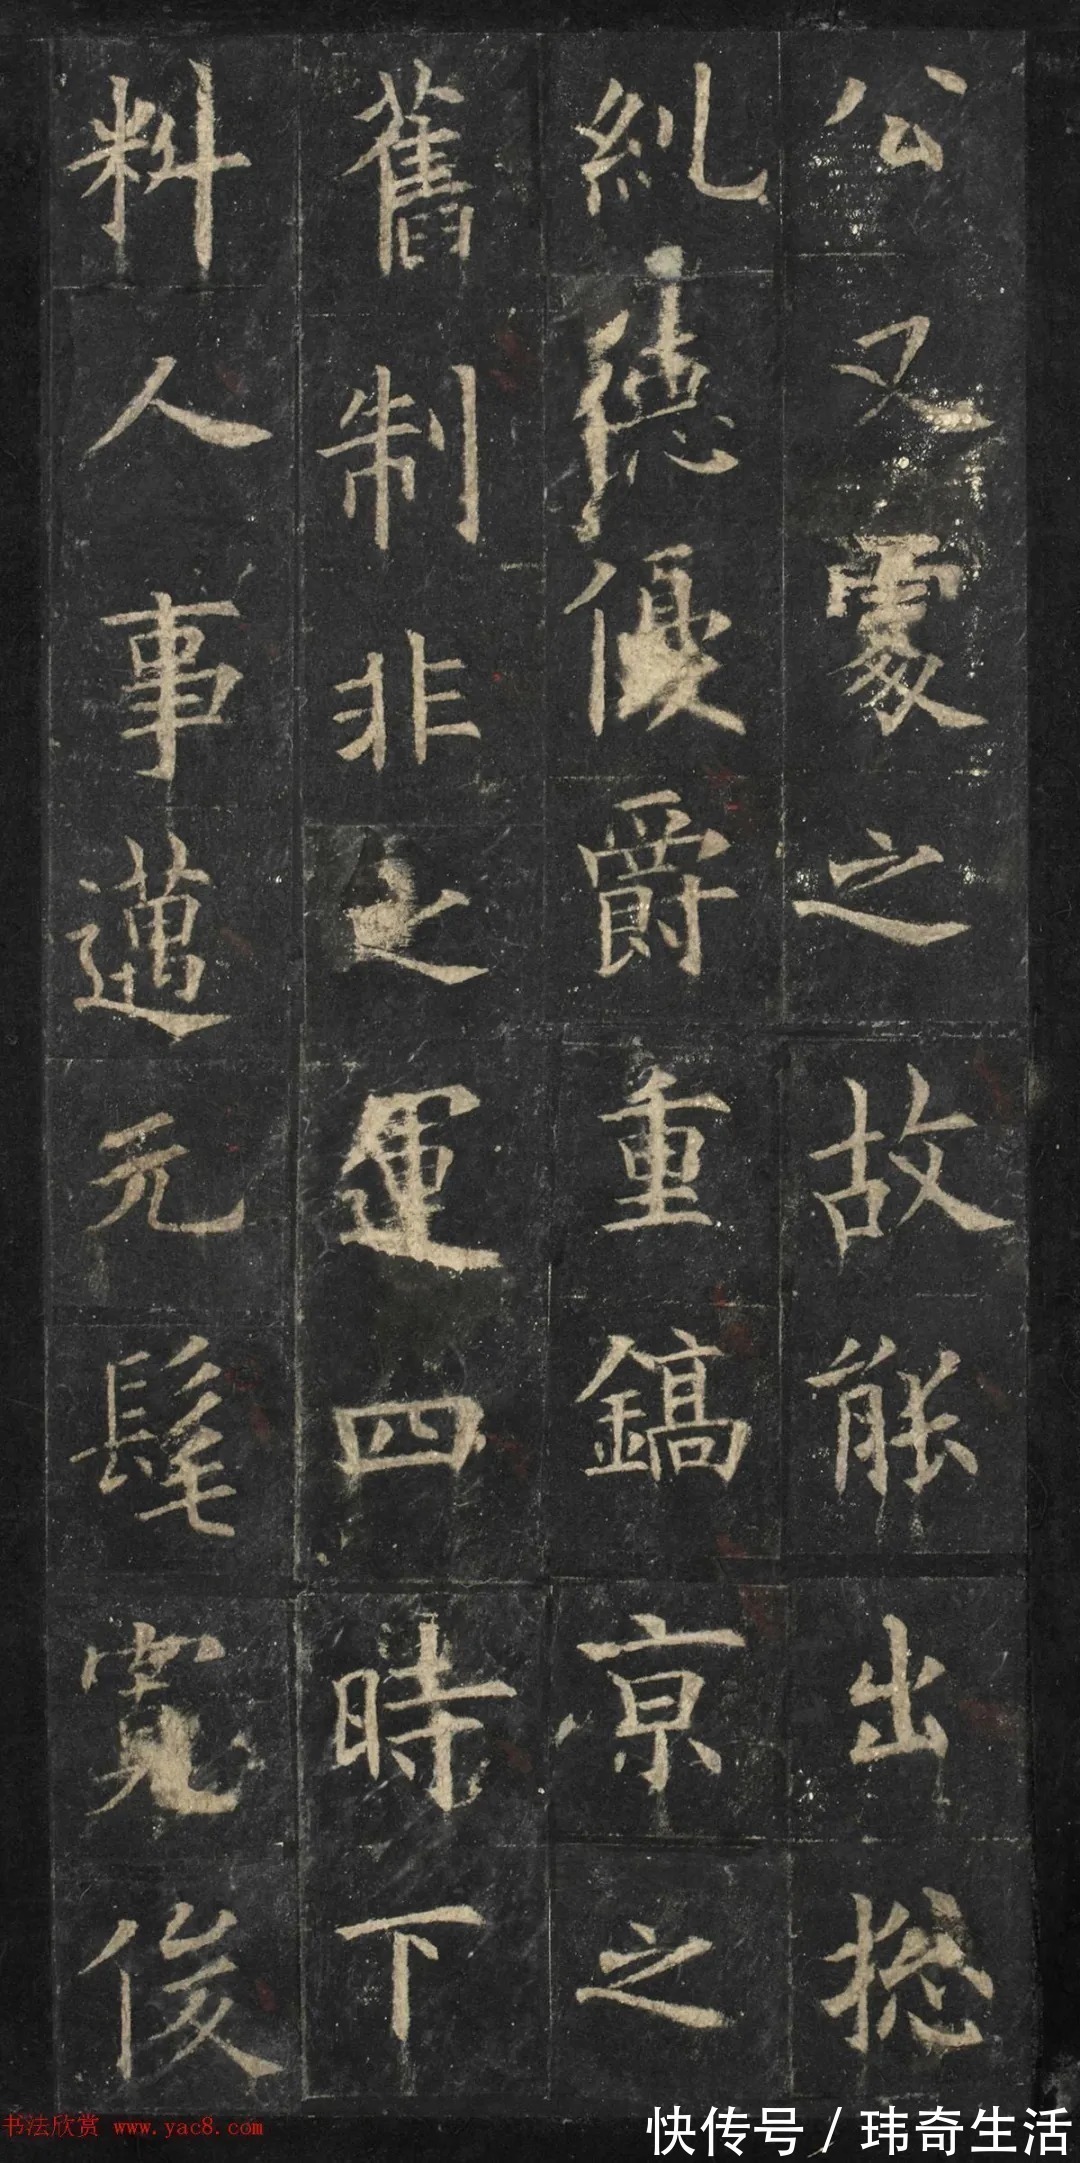 公又處之故能出揔
糺德優爵重鎬京之
舊制非之運四時下
料人事邁元髦寬俊
书法欣赏 www.yac8.com
快传号 / 玮奇生活